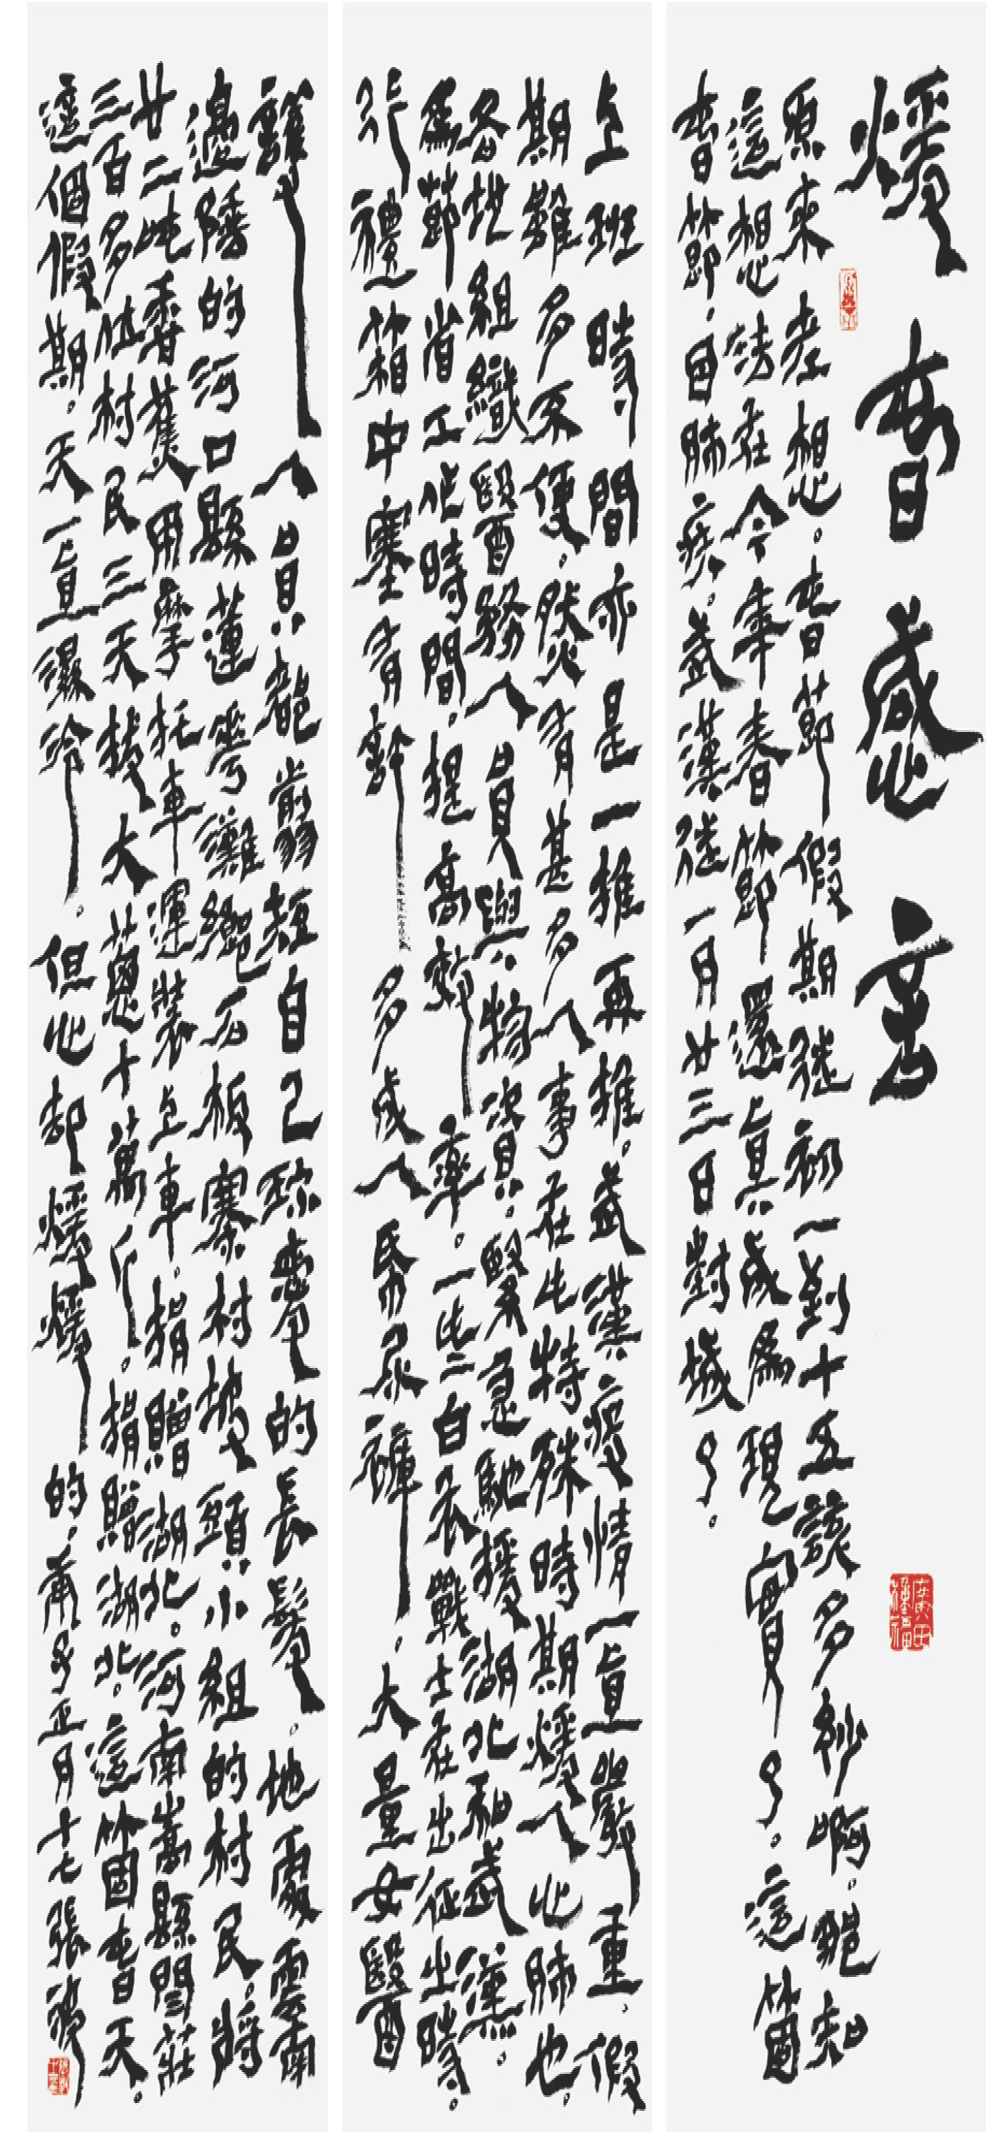 煖春感言
原來老想。春節假期從初一到十五該多妙啊。豈知
這想法在今年春節還真成爲現實了。這箇
春節。因肺疫。武漢從一月廿三日封城了。
上班時間亦是一推再推。武漢疫情一直嚴重。假
期雖多不便。然有甚多人事在此特殊時期煖人心肺也。
各地組織醫務人員與物資。緊急馳援湖北和武漢。
爲節省工作時間。提高效率。一些白衣戰士在出征出時。
行禮箱中塞有許多成人帋尿褲。大量女醫
護人員都翦短自己珍愛的長髮。地處雲南
邊陲的河口縣蓮花灘鄉石板寨村坡頭小組的村民。將
廿二吨香蕉用摩托車運裝上車。捐贈湖北。河南嵩縣閆莊
三百多位村民三天拔大蔥十萬斤。捐贈湖北。這箇春天。
這個假期。天一直濕冷。但心却煖煖的。庚子正月十七張波
廣田種福